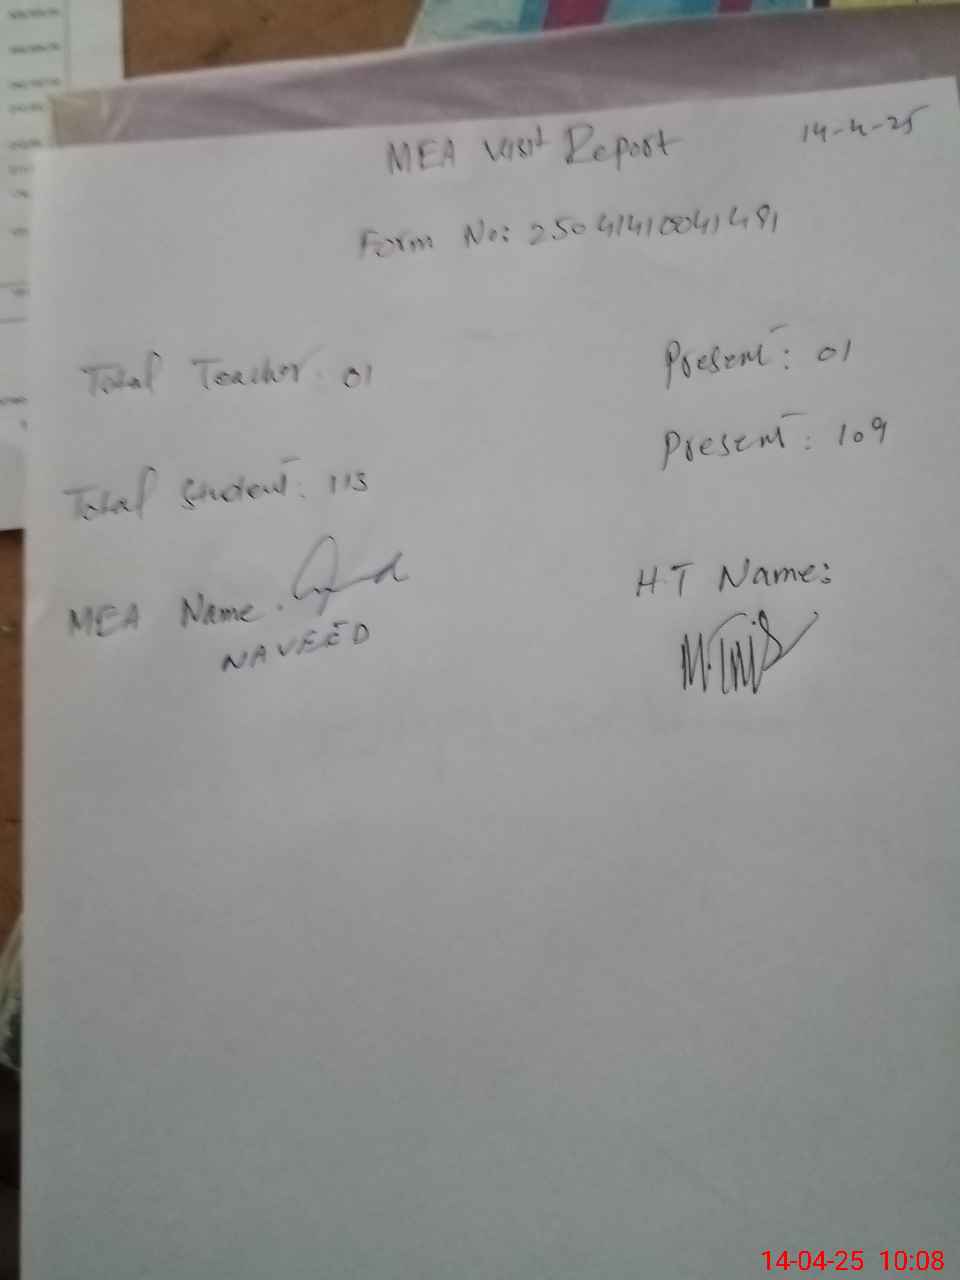 MEA Visit Report 14-4-25
Form No: 25041410041491
Total Teacher: 01 Present: 01
Total Student: 113 Present: 109
MEA Name. HT Name:
NAVEED
14-04-25 10:08